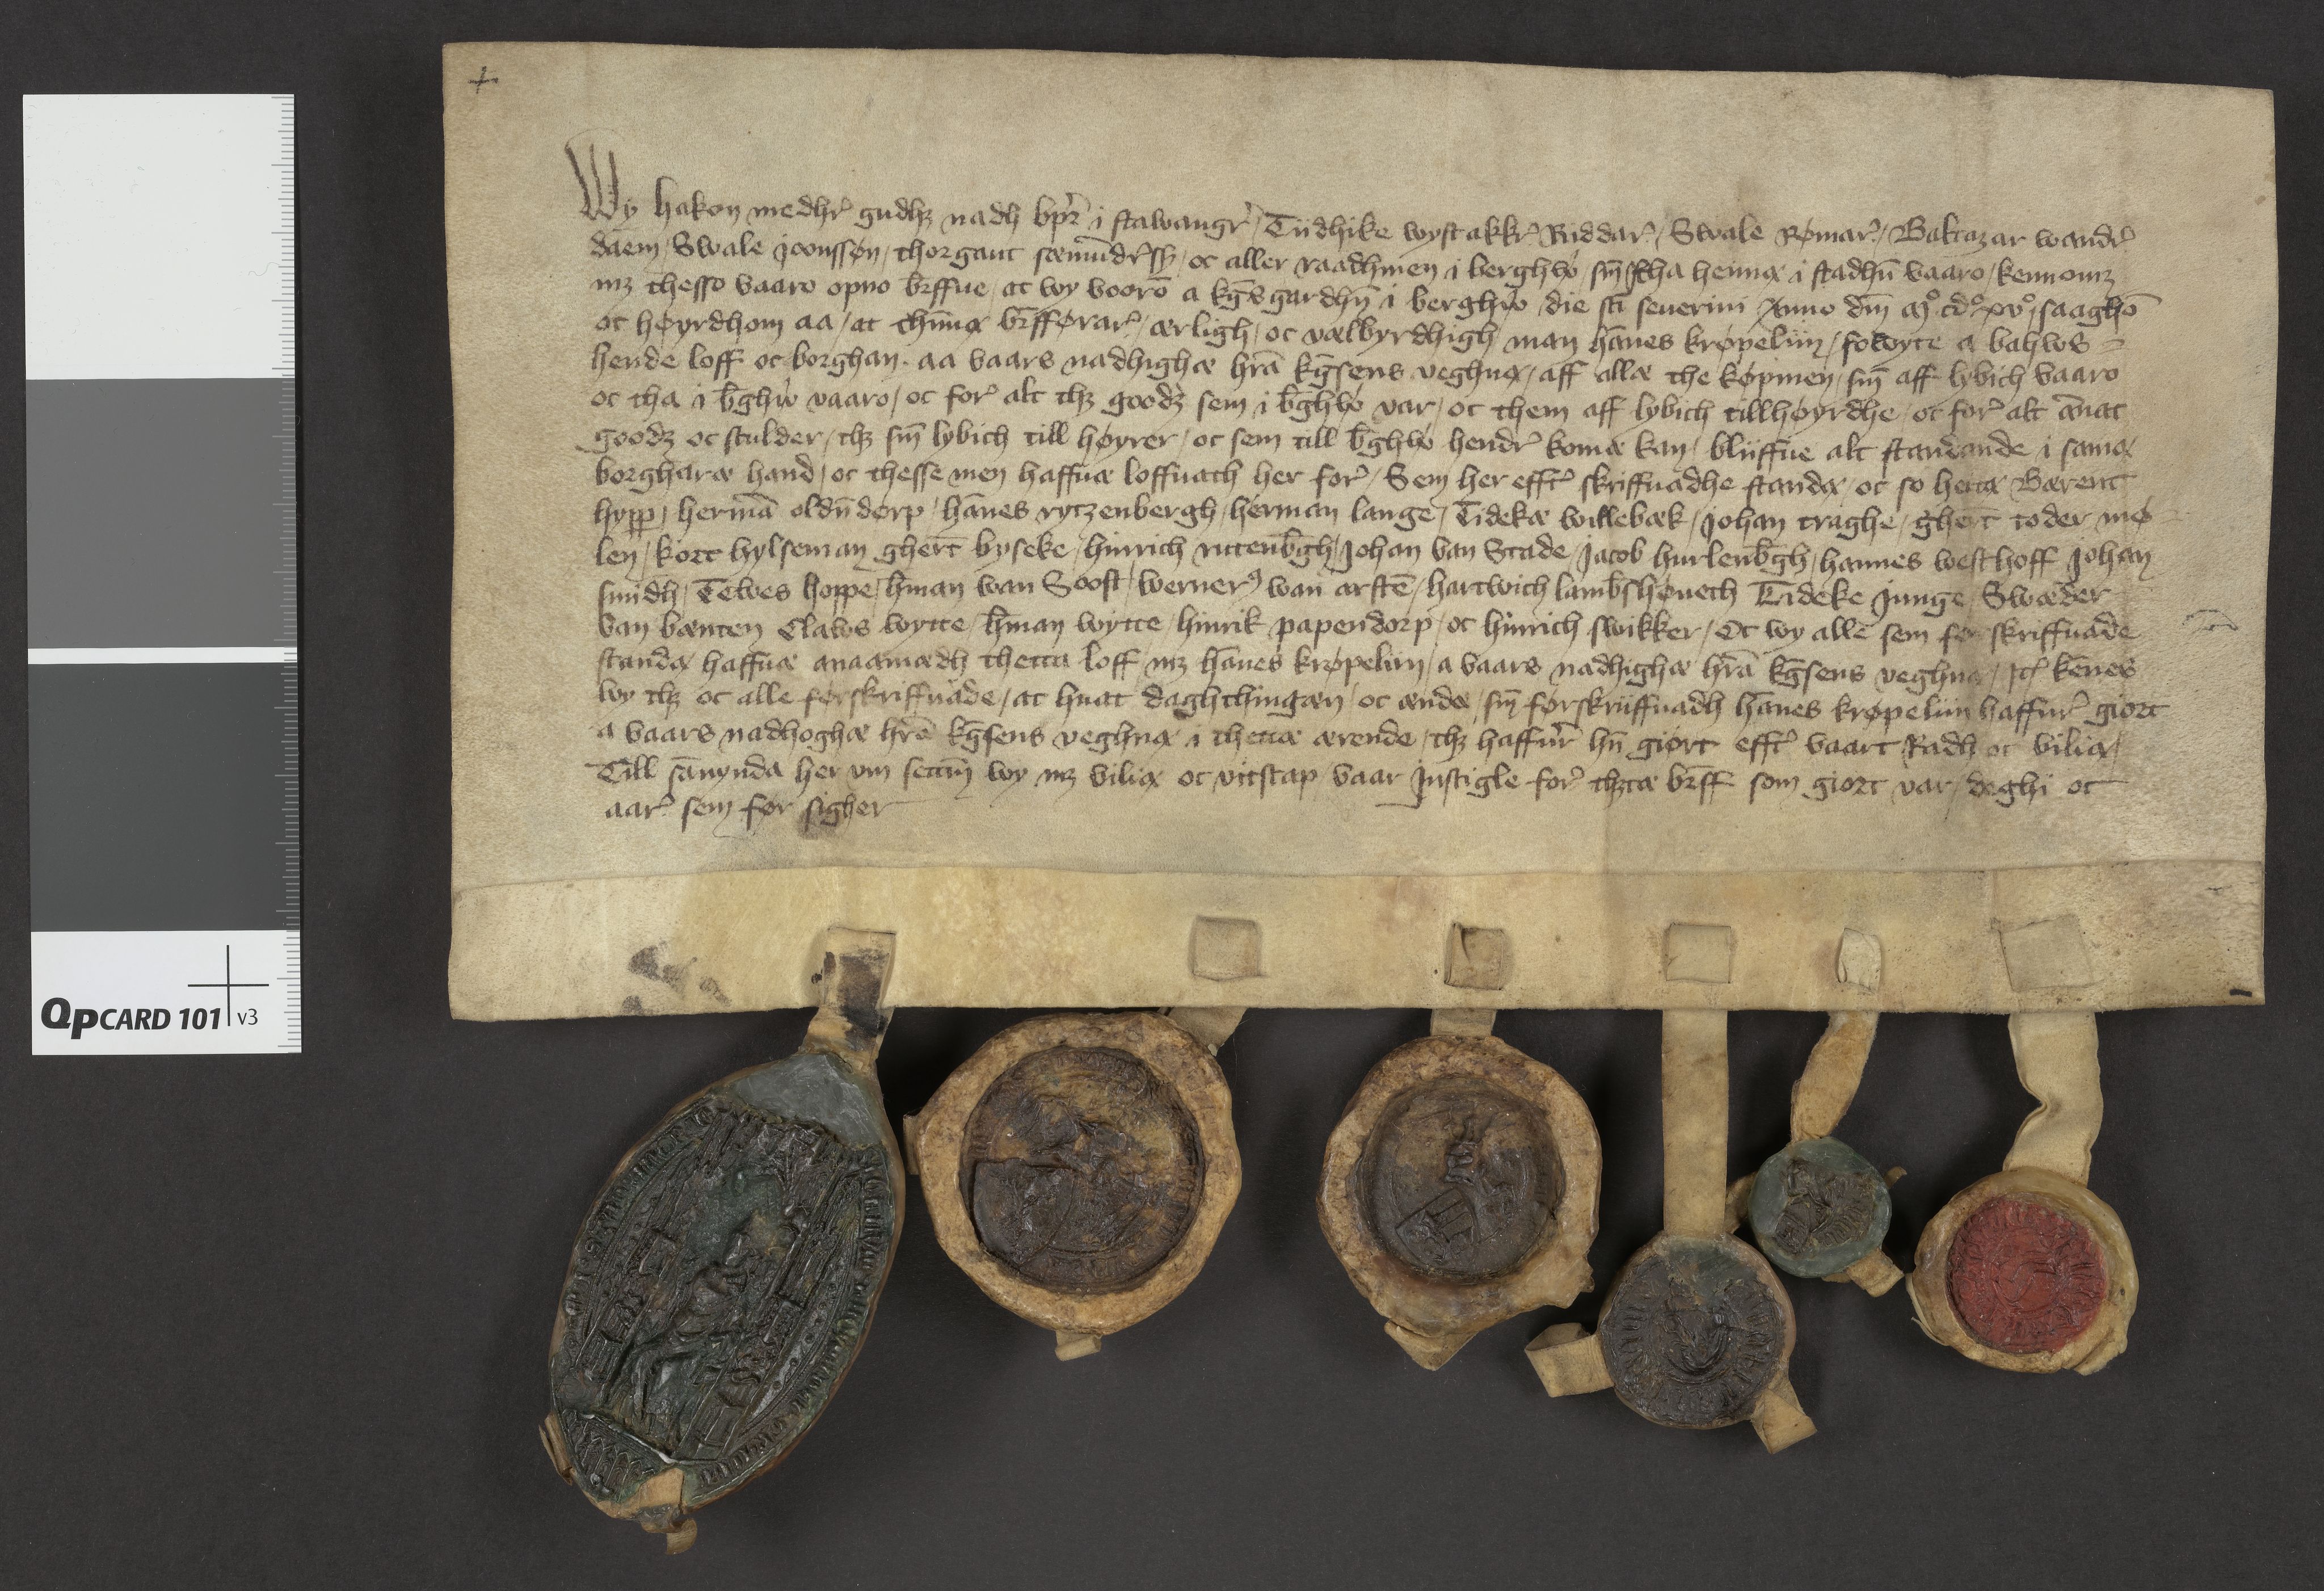 +
Wy hakon medhꝛ gudhz nadh bpꝛ i stawangꝛ / Tiidhike wystakkꝛ Riddarꝛ / Swale Rømarꝛ / Baltazar wandꝛ
daem / Swale joonssøn / thorgaut sæmu̅dꝛsß / oc aller raadhmen i berghwo / sm̅ tha heima i stadhn̅ vaaro / kennomz
mz thesso vaaro opno br̅ffue / at wy vooro̅ a kg̅s gardhn̅ i berghwo die sc̅i seuerini Anno dn̅i m°cd°xv° / saagho̅
oc høyrdhom aa / at thn̅næ br̅fførarꝛ / ærligh / oc vælbyrdhigh man ha̅nes krøpeliin / fowyte a bahws =
hende loff oc borghan aa vaars nadhighæ hr̅a kg̅sens veghnæ / aff allæ the køpmen / sm̅ aff lybich vaaro
oc tha i bg̅hwo vaaro / oc forꝛ alt thz goodz sem i bg̅hwo var / oc them aff lybich tillhøyrdhe / oc forꝛ alt a̅nat
goodz oc sculder / thz sm̅ lybich till høyrer / oc sem till bg̅hwo hendꝛ komæ kan / bliiffue alt standande i samæ
borgharæ hand / oc thesse men haffuæ loffuath her forꝛ / Sem her efftꝛ skriffuadhe standæ / oc so hettæ Bærent
hypp / herma̅ oldn̅dorp / ha̅nes rytzenbergh / herman lange / Tidekæ willebæk / Johan traghe / ghert̅ to der mø
len / kort hylseman ghert̅ byseke / hinrich rutenbg̅h / Johan van Stade / Jacob hurlenbg̅h / hannes westhoff Johan
smidh / Tewes hoppe / hm̅an wan Soost / wernerꝰ wan arste̅ / hartwich lambshøueth Tideke Junge / Swæder
van bænten Claws wytte / hm̅an wytte / hinrik papendorp / oc hinrich swikker / Oc wy alle sem før skriffuade
standæ haffuæ anaamædh thetta loff / mz ha̅nes krøpeliin / a vaars nadhighæ hr̅a kg̅sens veghnæ / Jtꝭ ke̅nes
wy thz oc alle førskriffuade / at huat daghthingæn / oc ændæ / sm̅ førskriiffuadh ha̅nes krøpeliin haffurꝛ giort
a vaars nadhoghæ hr̅a kg̅sens veghnæ i thettæ ærende / thz haffurꝛ hn̅ giort efftꝛ vaart Radh oc viliæ /
Till sa̅nynda her vm settm̅ wy mz viliæ oc vitscap vaar Jnsigle forꝛ thztæ br̅ff som giort var / deghi oc
aarꝛ sem før sigher
QpCARD 101 v3